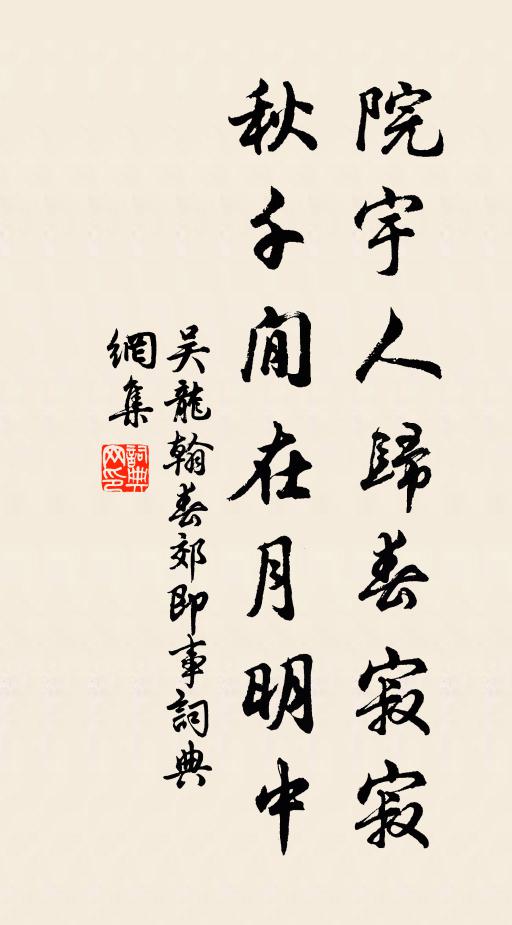 院宇人歸春寂寂
秋千閒在月明中
吴龍翰春郊即事詞典
網集
詞典
网印